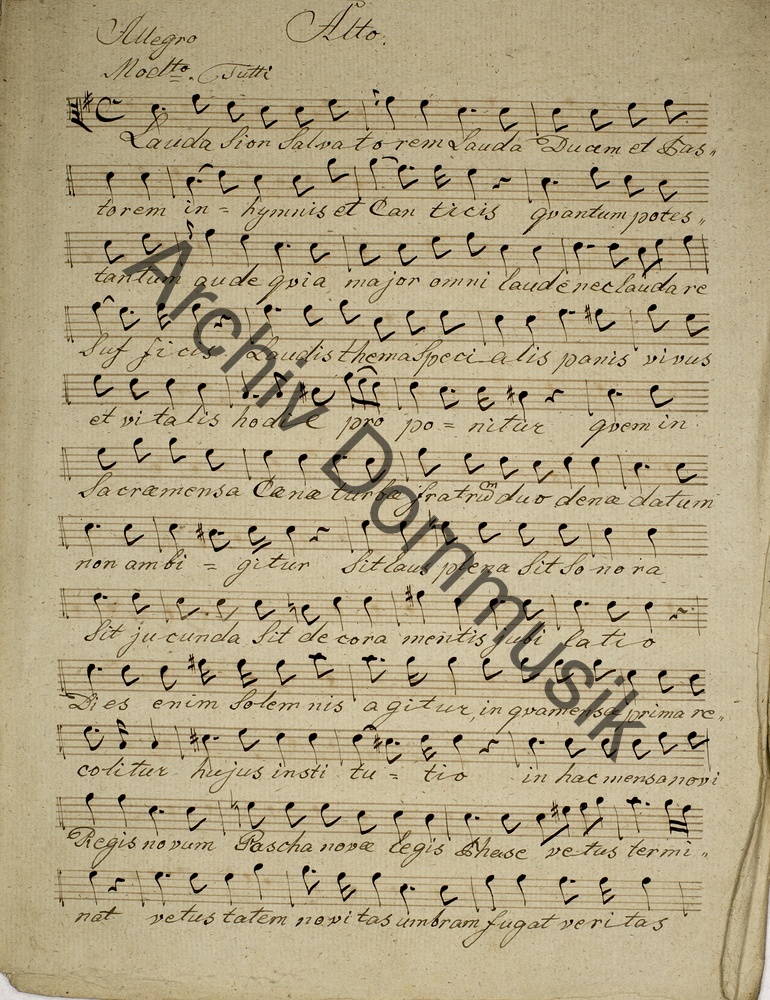 Allegro Alto.
Modto. Tutti
Lauda Sion Salvato rem Lauda Ducem et Pas„
torem in = hymnis et Can ticis quantum potes„
tantum aude quia major omni laude nec laudare
Suf ficis Laudis thema Speci alis panis vivus
et vitalis hodie pro po = nitur quem in
Sacræ mensa Cænæ turbæ fratrum duo denæ datum
non ambi = gitur Sit laus plena Sit So no ra
Sit jucunda Sit decora mentis jubi latio
Dies enim Solemnis agitur, in qua mensæ prima re„
colitur hujus insti tu = tio in hac mensa novi
Regis novum Pascha novæ legis Phase vetus termi„
nat vetustatem novitas umbram fugat veritas
Archiv Dommusik